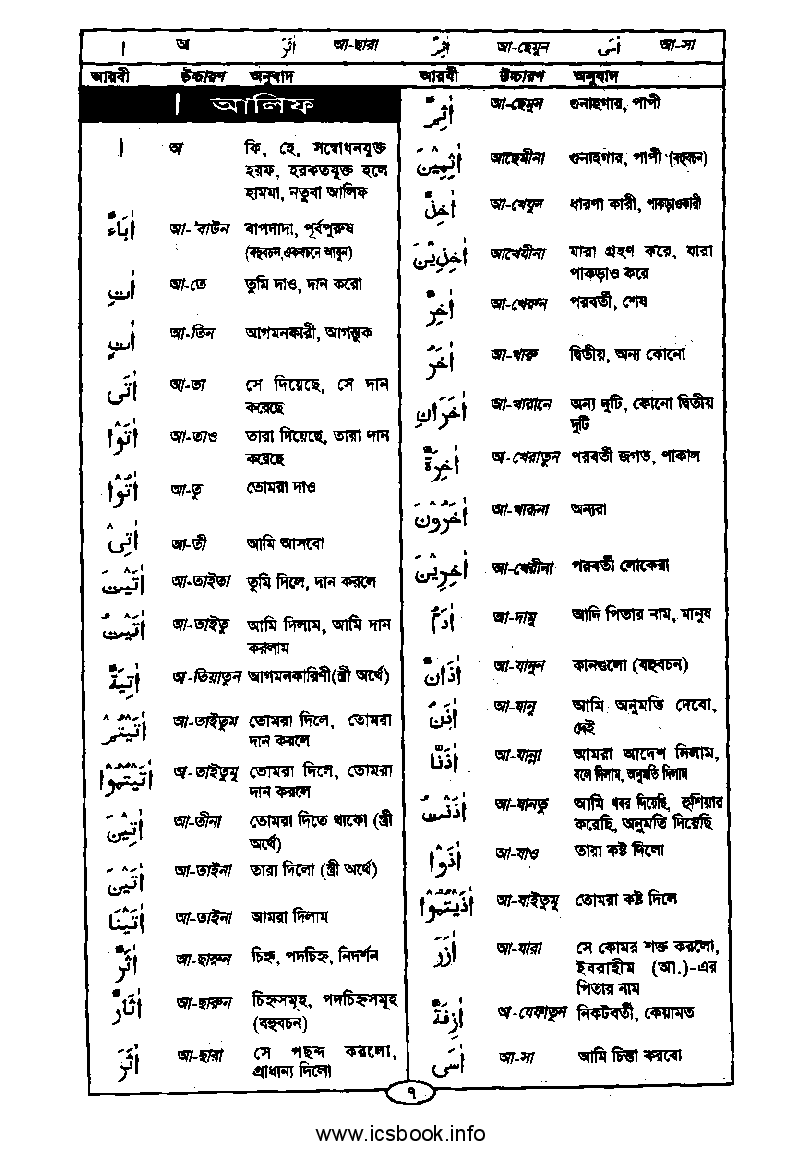 ا অ اٰثَرَ আ-ছারা اٰثِمٌ আ-ছেমুন اٰسَى আ-সা
আরবী উচ্চারণ অনুবাদ
ا আলিফ
ا অ কি, হে, সম্বোধনযুক্ত
হরফ, হরকতযুক্ত হলে
হামযা, নতুবা আলিফ
اٰبَاءٌ আ-বাউন বাপদাদা, পূর্বপুরুষ
(বহুবচন,একবচনে আবুন)
اٰتِ আ-তে তুমি দাও, দান করো
اٰتٍ আ-তিন আগমনকারী, আগন্তুক
اٰتَى আ-তা সে দিয়েছে, সে দান
করেছে
اٰتَوْا আ-তাও তারা দিয়েছে, তারা দান
করেছে
اٰتُوْا আ-তু তোমরা দাও
اٰتِىْ আ-তী আমি আসবো
اٰتَيْتَ আ-তাইতা তুমি দিলে, দান করলে
اٰتَيْتُ আ-তাইতু আমি দিলাম, আমি দান
করলাম
اٰتِيَةٌ আ-তিয়াতুন আগমনকারিণী(স্ত্রী অর্থে)
اٰتَيْتُمْ আ-তাইতুম তোমরা দিলে, তোমরা
দান করলে
اٰتَيْتُمُوْا আ-তাইতুমু তোমরা দিলে, তোমরা
দান করলে
اٰتِيْنَ আ-তীনা তোমরা দিতে থাকো (স্ত্রী
অর্থে)
اٰتَيْنَ আ-তাইনা তারা দিলো (স্ত্রী অর্থে)
اٰتَيْنَا আ-তাইনা আমরা দিলাম
اٰثَرٌ আ-ছারুন চিহ্ন, পদচিহ্ন, নিদর্শন
اٰثَارٌ আ-ছারুন চিহ্নসমূহ, পদচিহ্নসমূহ
(বহুবচন)
اٰثَرَ আ-ছারা সে পছন্দ করলো,
প্রাধান্য দিলো
আরবী উচ্চারণ অনুবাদ
اٰثِمٌ আ-ছেমুন গুনাহগার, পাপী
اٰثِمِيْنَ আছেমীনা গুনাহগার, পাপী (বহুবচন)
اٰخِذٌ আ-খেযুন ধারণা কারী, পাকড়াওকারী
اٰخِذِيْنَ আখেযীনা যারা গ্রহণ করে, যারা
পাকড়াও করে
اٰخِرٌ আ-খেরুন পরবর্তী, শেষ
اٰخَرُ আ-খারু দ্বিতীয়, অন্য কোনো
اٰخَرَانِ আ-খারানে অন্য দুটি, কোনো দ্বিতীয়
দুটি
اٰخِرَةٌ আ-খেরাতুন পরবর্তী জগত, পরকাল
اٰخَرُوْنَ আ-খারূনা অন্যরা
اٰخِرِيْنَ আ-খেরীনা পরবর্তী লোকেরা
اٰدَمُ আ-দামু আদি পিতার নাম, মানুষ
اٰذَانٌ আ-যানুন কানগুলো (বহুবচন)
اٰذَنُ আ-যানু আমি অনুমতি দেবো,
দেই
اٰذَنَّا আ-যান্না আমরা আদেশ দিলাম,
বলে দিলাম, অনুমতি দিলাম
اٰذَنْتُ আ-যানতু আমি খবর দিয়েছি, হুশিয়ার
করেছি, অনুমতি দিয়েছি
اٰذَوْا আ-যাও তারা কষ্ট দিলো
اٰذَيْتُمُوْا আ-যাইতুমু তোমরা কষ্ট দিলে
اٰزَرَ আ-যারা সে কোমর শক্ত করলো,
ইবরাহীম (আ.)-এর
পিতার নাম
اٰزِفَةٌ আ-যেফাতুন নিকটবর্তী, কেয়ামত
اٰسَى আ-সা আমি চিন্তা করবো
৭
www.icsbook.info